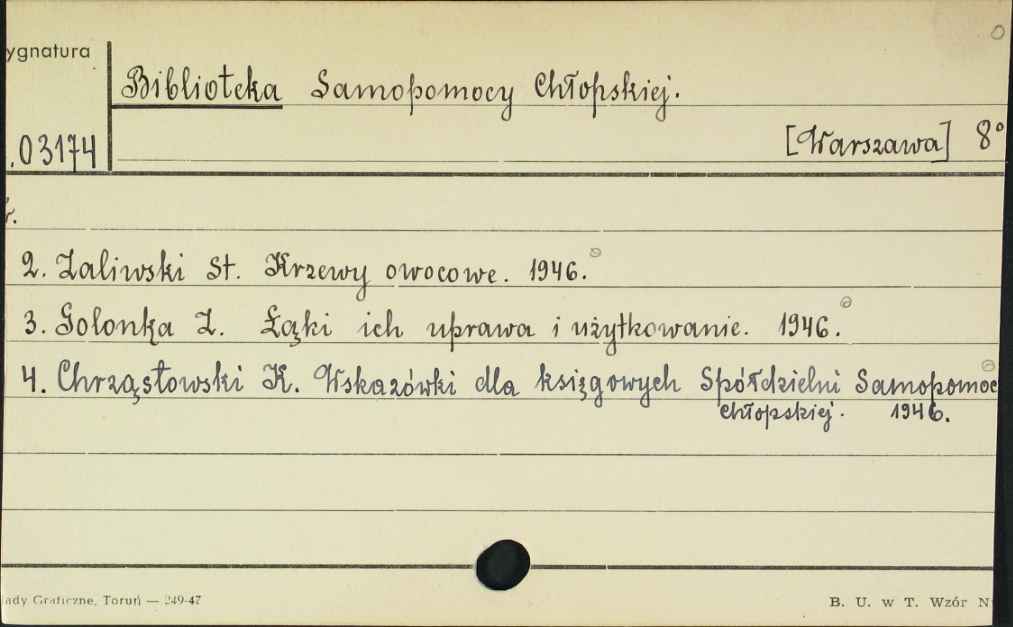 ygnatura
Biblioteka Samopomocy Chłopskiej.
.03174
[Warszawa] 8°
r.
2. Zaliwski St. Krzewy owocowe. 1946.
3. Golonka Z. Łąki ich uprawa i użytkowanie. 1946.
4. Chrząstowski K. Wskazówki dla księgowych Spółdzielni Samopomoc
Chłopskiej. 1946.
łady Graficzne, Toruń — 249-47
B. U. w T. Wzór N